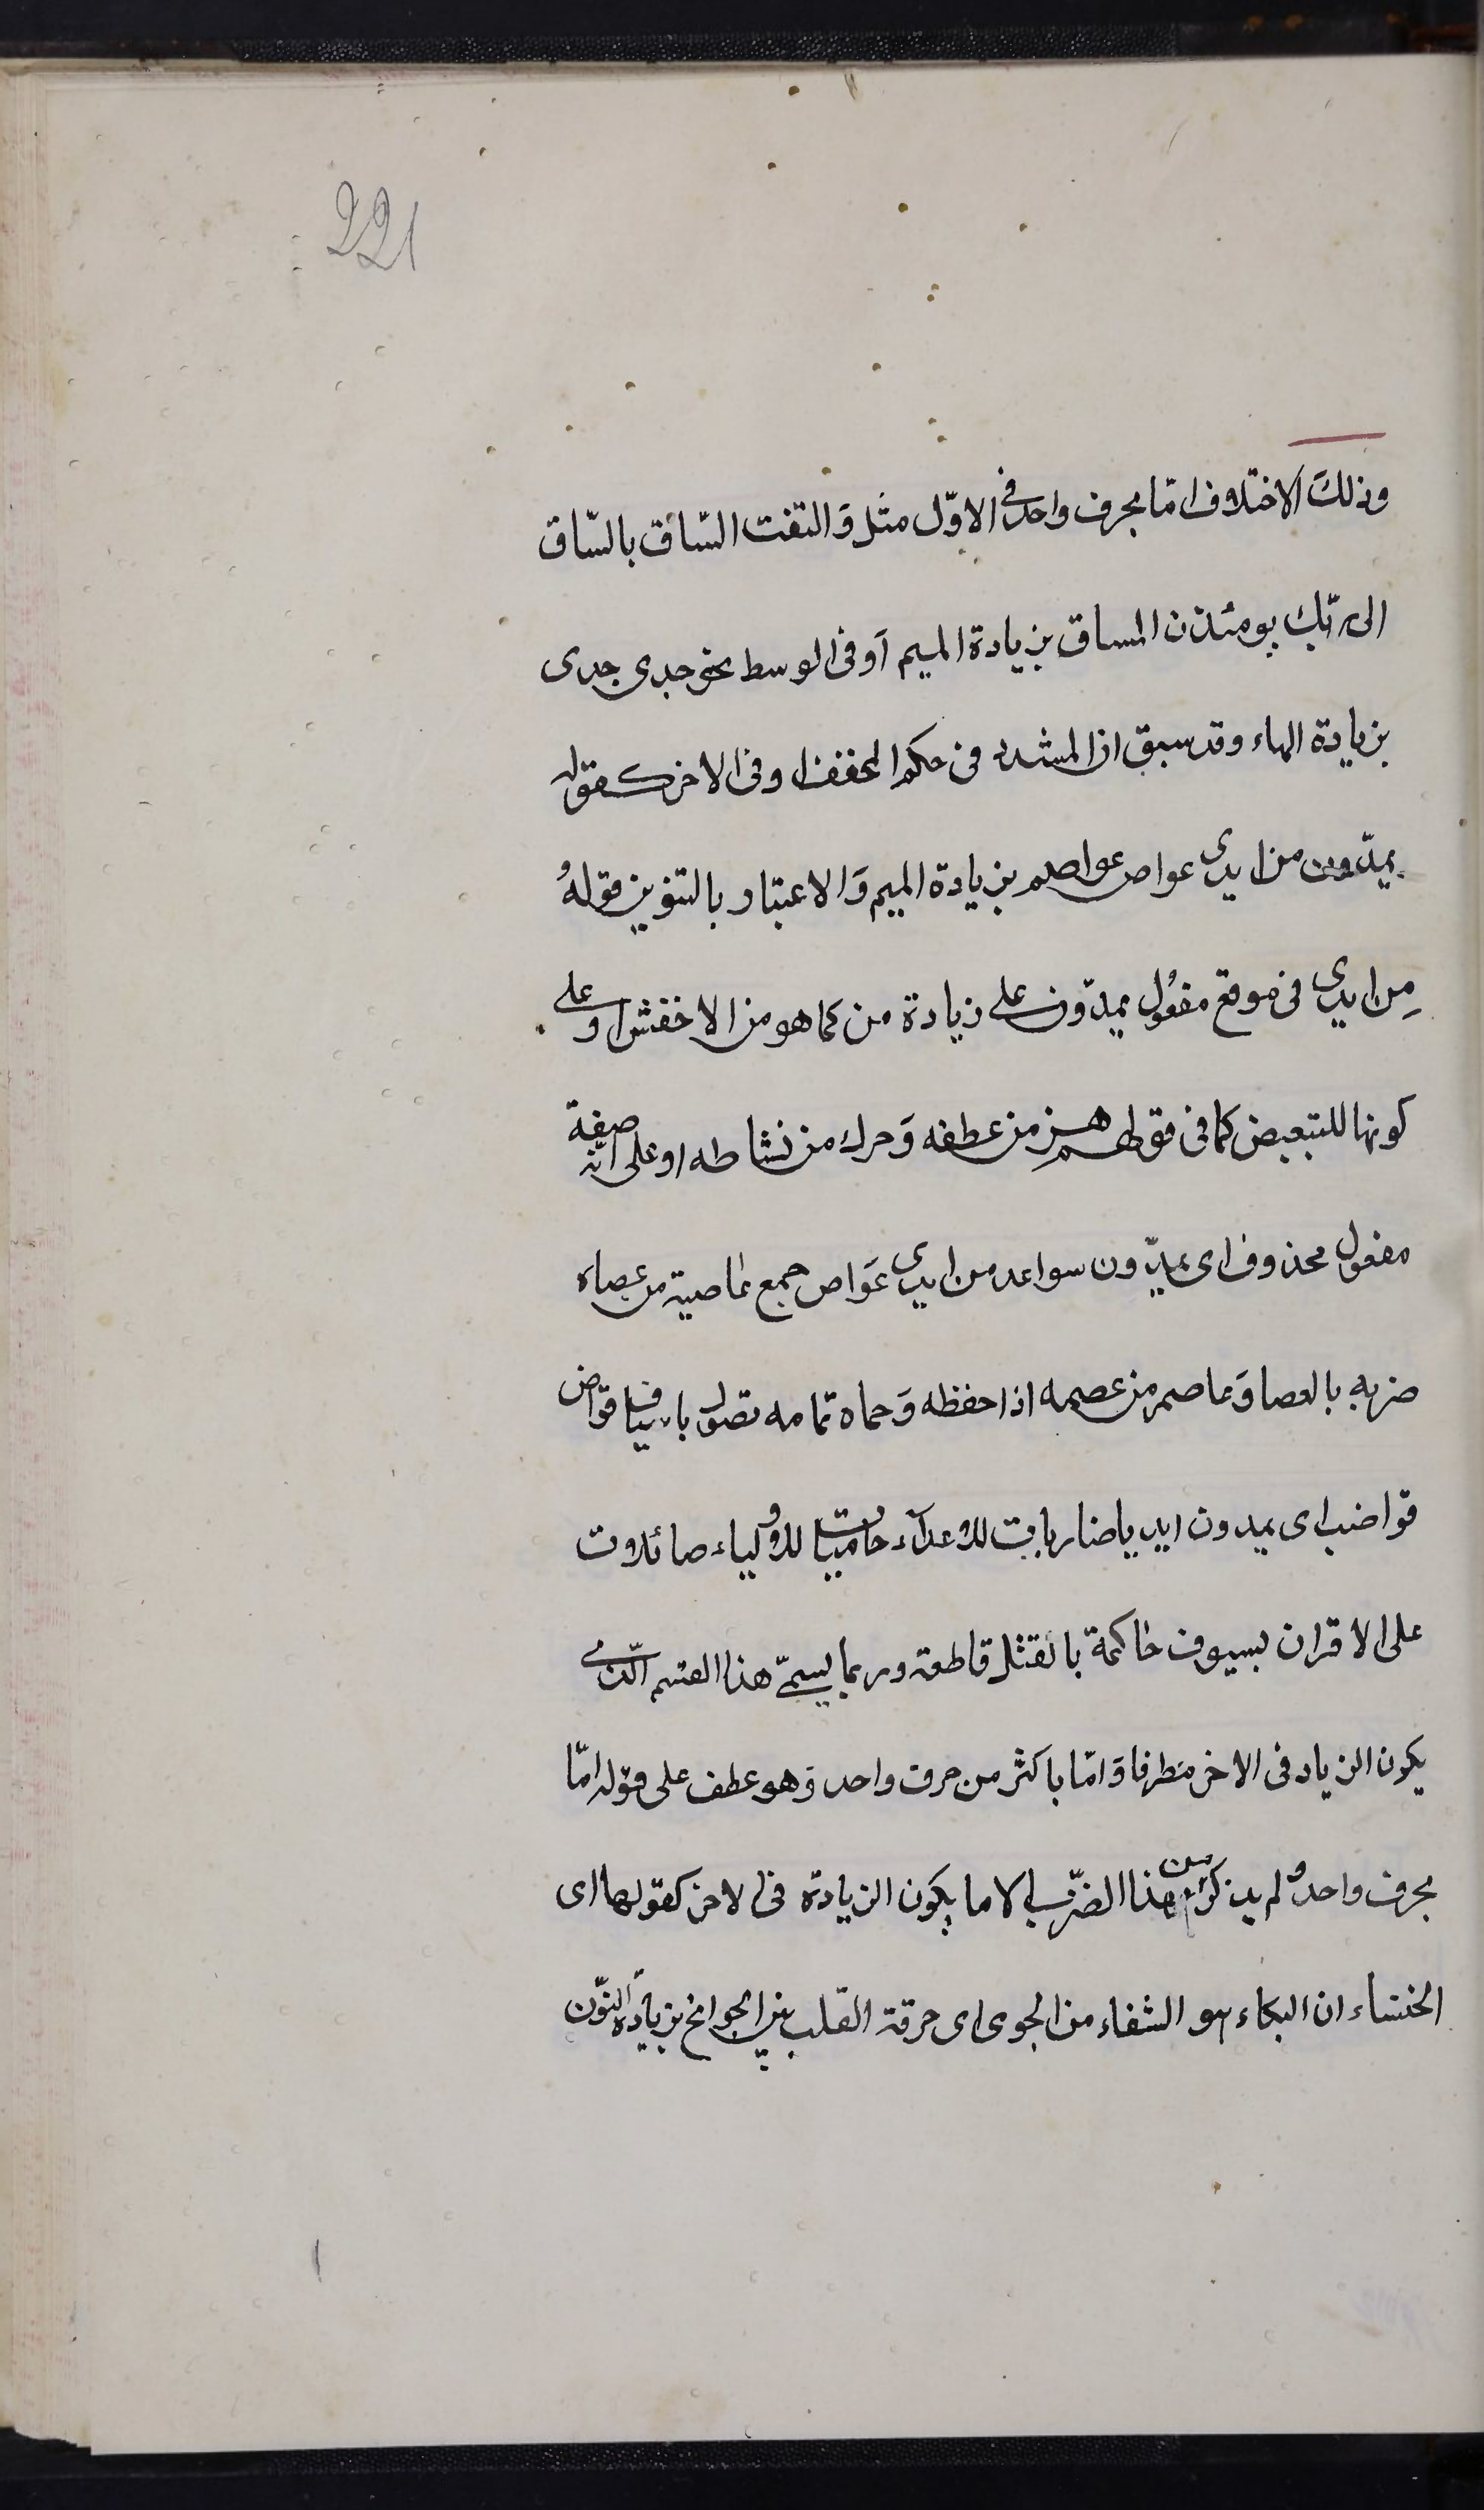 221
وذلكَ الاختلاف امّا بحرف واحد فى الاوّل مثل وَالتفت السّاق بالسّاق
الى ربّك يومئذن المساق بزيادة الميم اَو فى الوسط نحو جدى جهدى
بزيادة الهاء وقد سبق ان المشدد فى حكم المخفف او فى الاخر كقوله
يمدّون من ايدى عواص عواصم بزيادة الميم وَالاعتبار بالتنوين قولهُ
مِن ايدى فى موقع مفعُول يمدّون على زيادة من كما هو من الاخفش او على
كونها للتبعيض كما فى قولهم هز من عطفه وَحرك من نشاطه او على انّه صفة
مفعول محذوف اى يمدّون سواعد من ايدى عَواص جمع عاصية من عصاه
ضربه بالعصا وَعاصم من عصمه اذا حفظه وَحماه تمامه تصول باسياف قواض
قواضب اى يمدون ايديا ضاربات للاعدآء حاميات للاولياء صائلات
على الاقران بسيوف حاكمة بالقتل قاطعة وربما يسمّى هذا القسم الّذى
يكون الزياد فى الاخر مطرفا وَامّا باكثر من حرف واحد وَهو عطف على قوله امّا
بحرف واحد ولم يذكر من هذا الضّرب الا ما يكون الزيادة فى الاخر كقولها اى
الخنساء ان البكاء هو الشفاء من الجوى اى حرقة القلب بين الجوانح بزيادة النّون